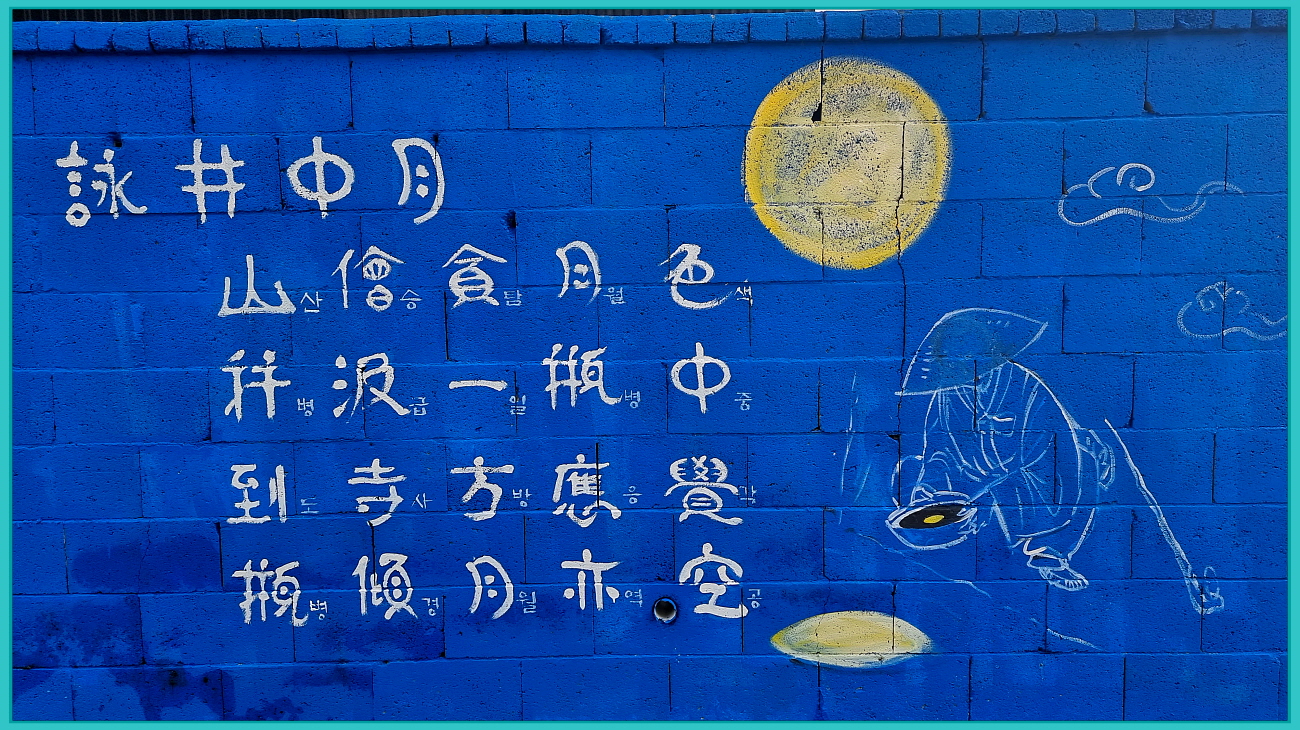 詠井中月
山산 僧승 貪탐 月월 色색
幷병 汲급 一일 甁병 中중
到도 寺사 方방 應응 覺각
甁병 傾경 月월 亦역 空공